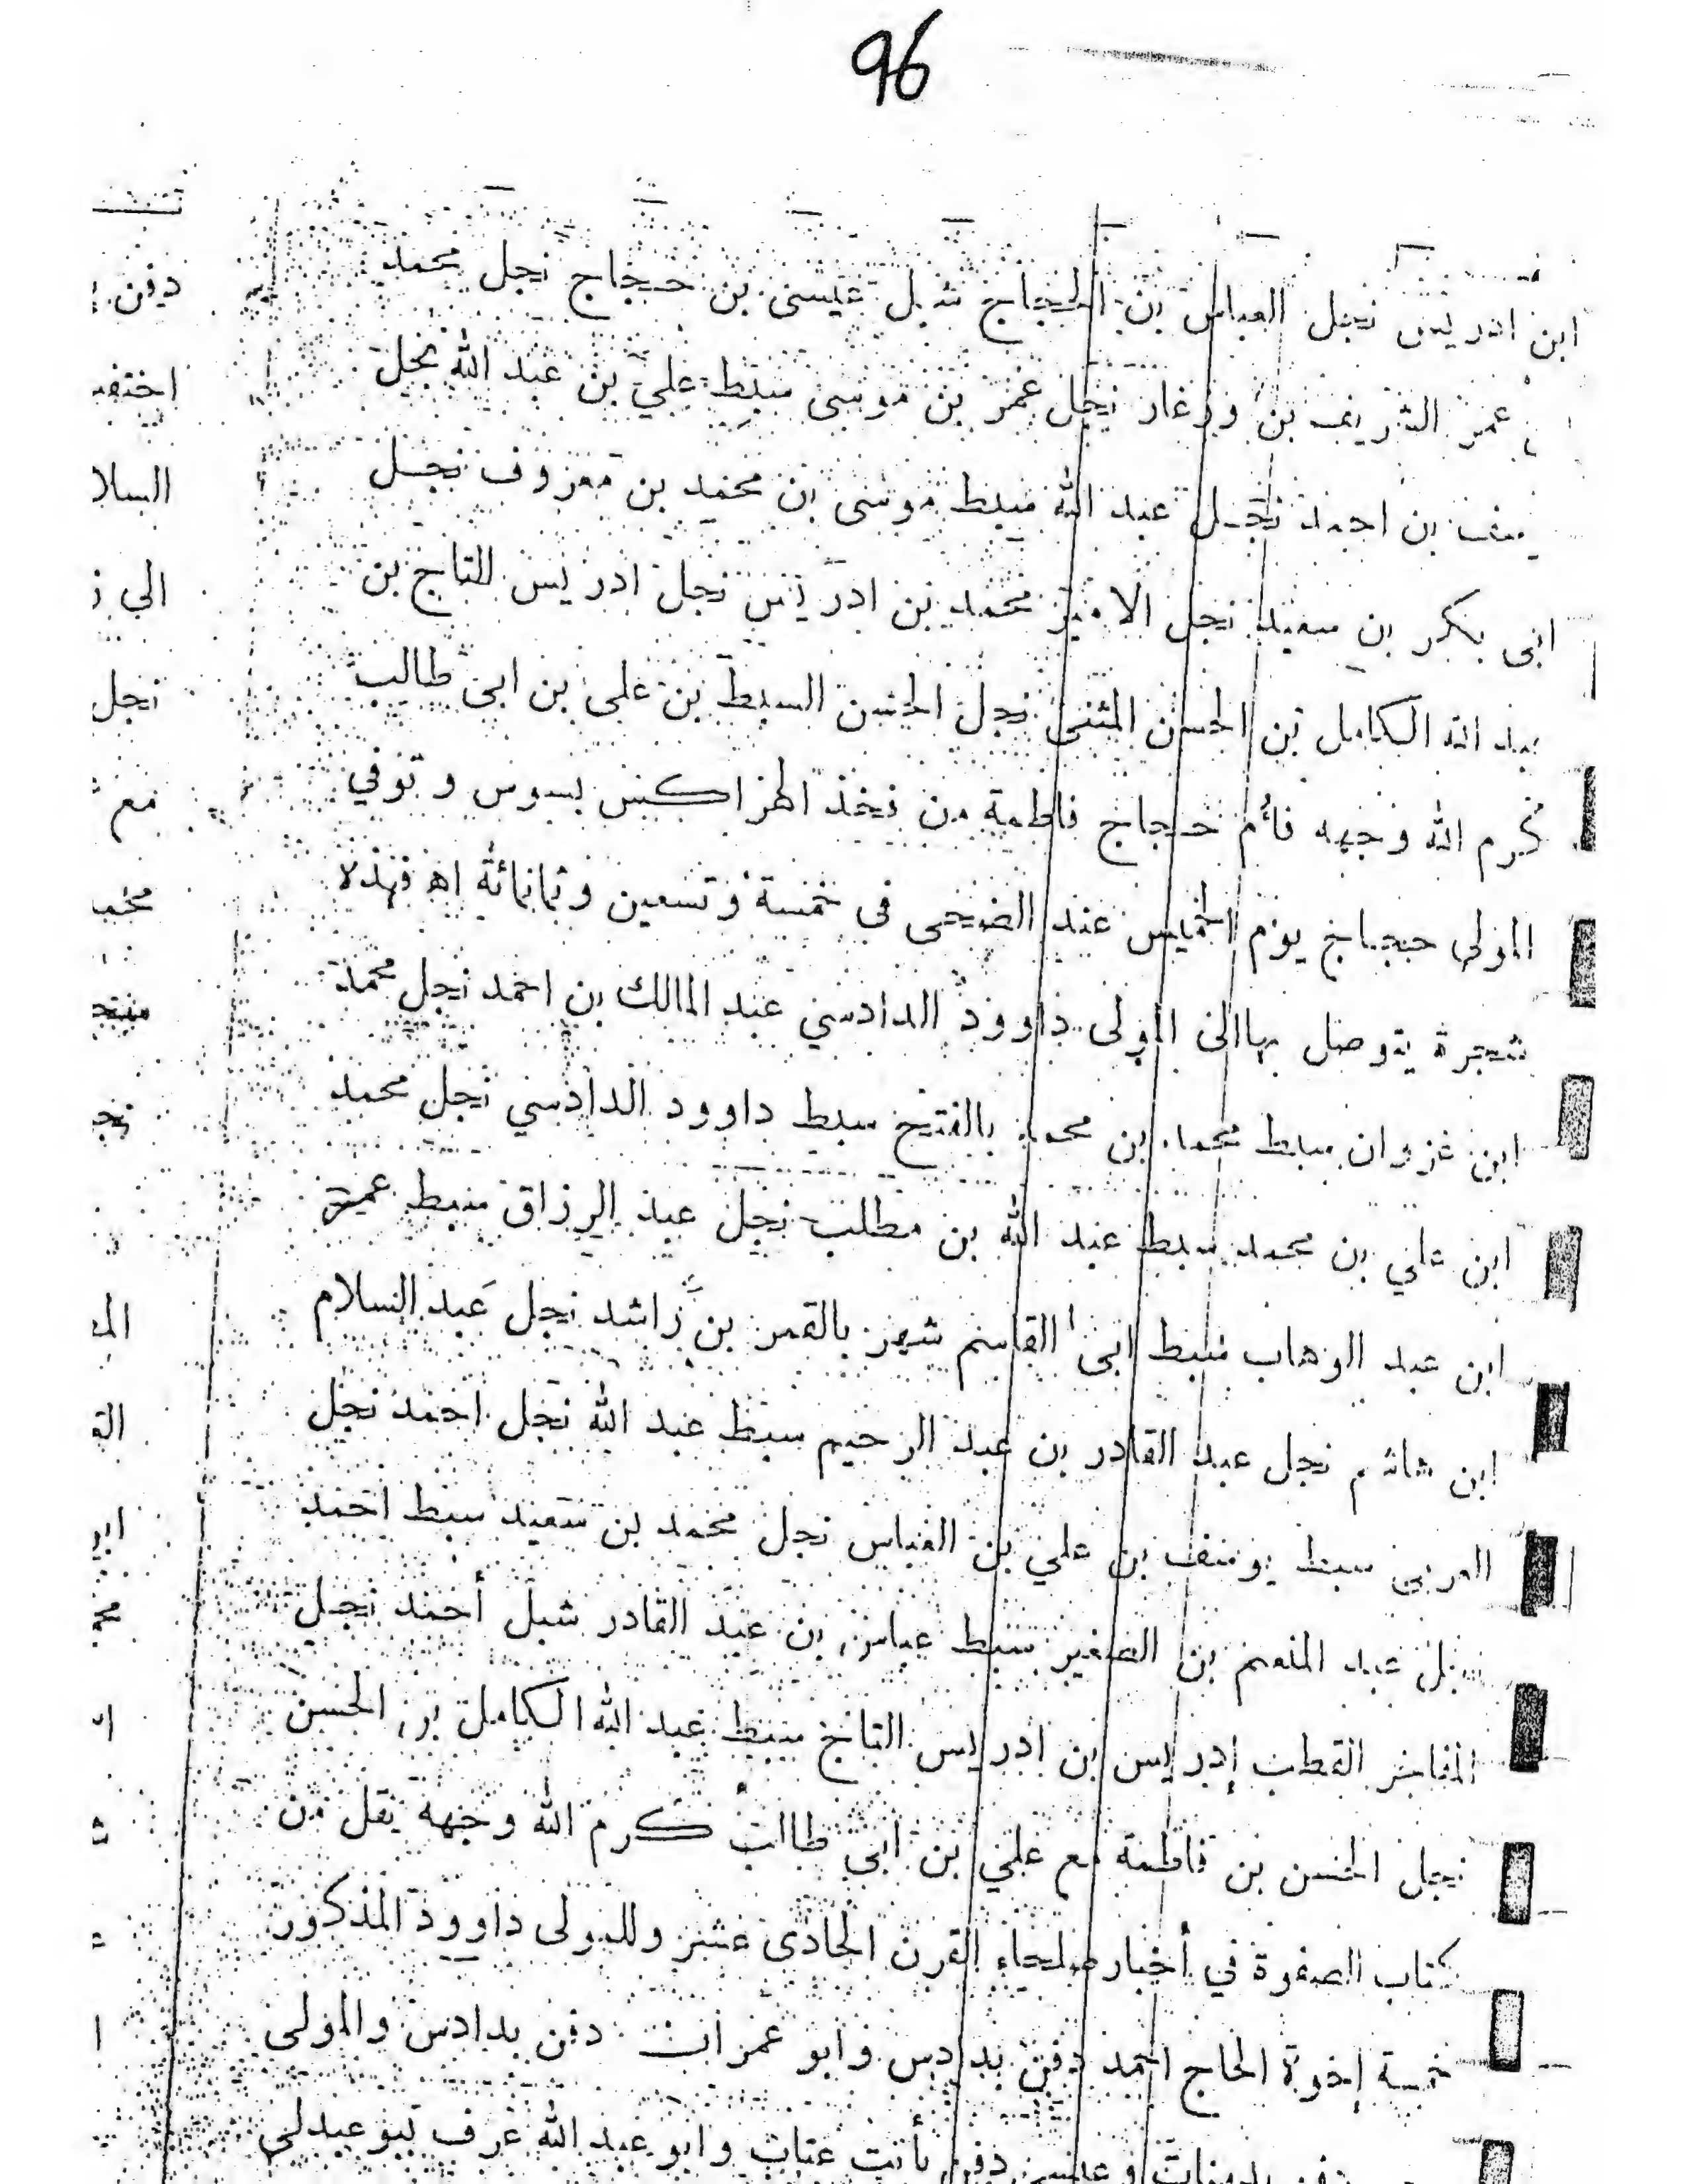 96
ابن ادريس نجل العباس بن الحجاج شبل عيسى بن حجاج نجل محمد
عمر الشريف بن وزغار نجل عمر بن موسى سبط علي بن عبد الله نجل
بن احمد نجل عبد الله سبط موسى بن محمد بن معزوف نجل
ابى بكر بن سعيد نجل الامير محمد بن ادريس نجل ادريس التاج بن
عبد الله الكامل بن الحسن المثنى نجل الحسن السبط بن على بن ابى طالب
كرم الله وجهه فأم حجاج فاطمة من فخذ الهزاكيس بسوس وتوفي
المولى حجاج يوم الخميس عند الضحى فى خمسة وتسعين وثمانمائة اه فهذه
شجرة يتوصل بهاالى المولى داوود الدادسي عبد المالك بن احمد نجل محمد
ابن غزوان سبط محمد بن محمد بالفتح سبط داوود الدادسي نجل محمد
ابن علي بن محمد سبط عبد الله بن مطلب نجل عبد الرزاق سبط عمر
ابن عبد الوهاب سبط ابى القاسم شهر بالقمر بن راشد نجل عبد السلام
ابن هاشم نجل عبد القادر بن عبد الرحيم سبط عبد الله نجل احمد نجل
العربى سبط يوسف بن علي بن العباس نجل محمد بن سعيد سبط احمد
عبد المنعم بن الصغير سبط عباس بن عبد القادر شبل أحمد نجل
المفاخر القطب إدريس بن ادريس التاج سبط عبد الله الكامل بن الحسن
نجل الحسن بن فاطمة مع علي بن ابي طالب كرم الله وجهه نقل من
كتاب الصفوة في أخبار صلحاء القرن الحادى عشر وللمولى داوود المذكور
خمسة إخوة الحاج احمد دفن بدادس وابو عمران دفن بدادس والمولى
دفن وعيسى دفن بأنت عتاب وابو عبد الله عرف ببوعبدلي
دفن
السلا
الي
نجل
مع